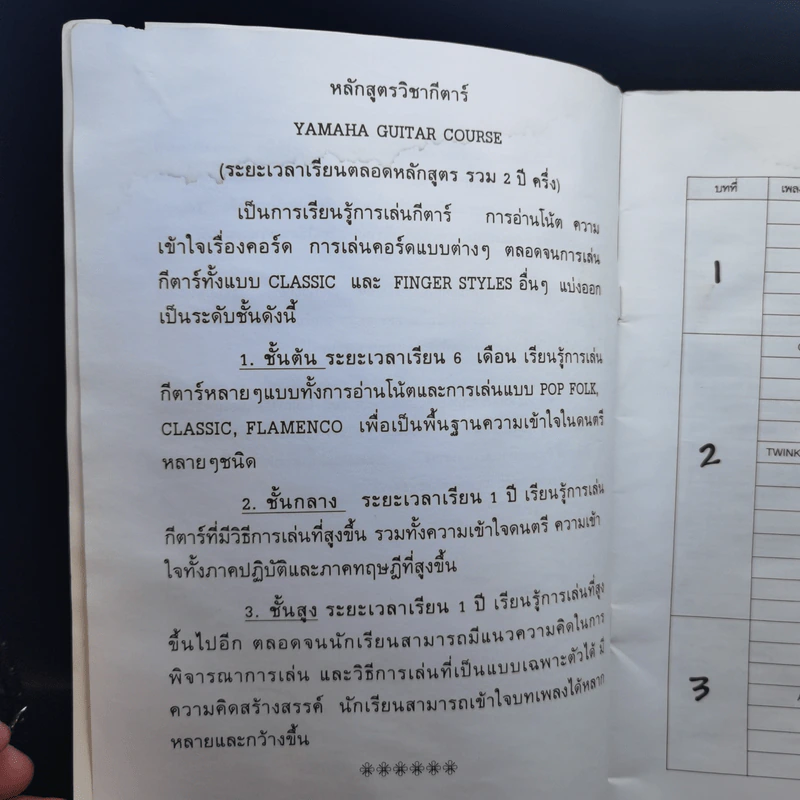 หลักสูตรวิชากีตาร์
YAMAHA GUITAR COURSE
(ระยะเวลาเรียนตลอดหลักสูตร รวม 2 ปี ครึ่ง)
เป็นการเรียนรู้การเล่นกีตาร์ การอ่านโน้ต ความ
เข้าใจเรื่องคอร์ด การเล่นคอร์ดแบบต่างๆ ตลอดจนการเล่น
กีตาร์ทั้งแบบ CLASSIC และ FINGER STYLES อื่นๆ แบ่งออก
เป็นระดับชั้นดังนี้
1. ชั้นต้น ระยะเวลาเรียน 6 เดือน เรียนรู้การเล่น
กีตาร์หลายๆแบบทั้งการอ่านโน้ตและการเล่นแบบ POP FOLK,
CLASSIC, FLAMENCO เพื่อเป็นพื้นฐานความเข้าใจในดนตรี
หลายๆชนิด
2. ชั้นกลาง ระยะเวลาเรียน 1 ปี เรียนรู้การเล่น
กีตาร์ที่มีวิธีการเล่นที่สูงขึ้น รวมทั้งความเข้าใจดนตรี ความเข้า
ใจทั้งภาคปฏิบัติและภาคทฤษฎีที่สูงขึ้น
3. ชั้นสูง ระยะเวลาเรียน 1 ปี เรียนรู้การเล่นที่สูง
ขึ้นไปอีก ตลอดจนนักเรียนสามารถมีแนวความคิดในการ
พิจารณาการเล่น และวิธีการเล่นที่เป็นแบบเฉพาะตัวได้ มี
ความคิดสร้างสรรค์ นักเรียนสามารถเข้าใจบทเพลงได้หลาก
หลายและกว้างขึ้น
บทที่
1
2
TWINK
3